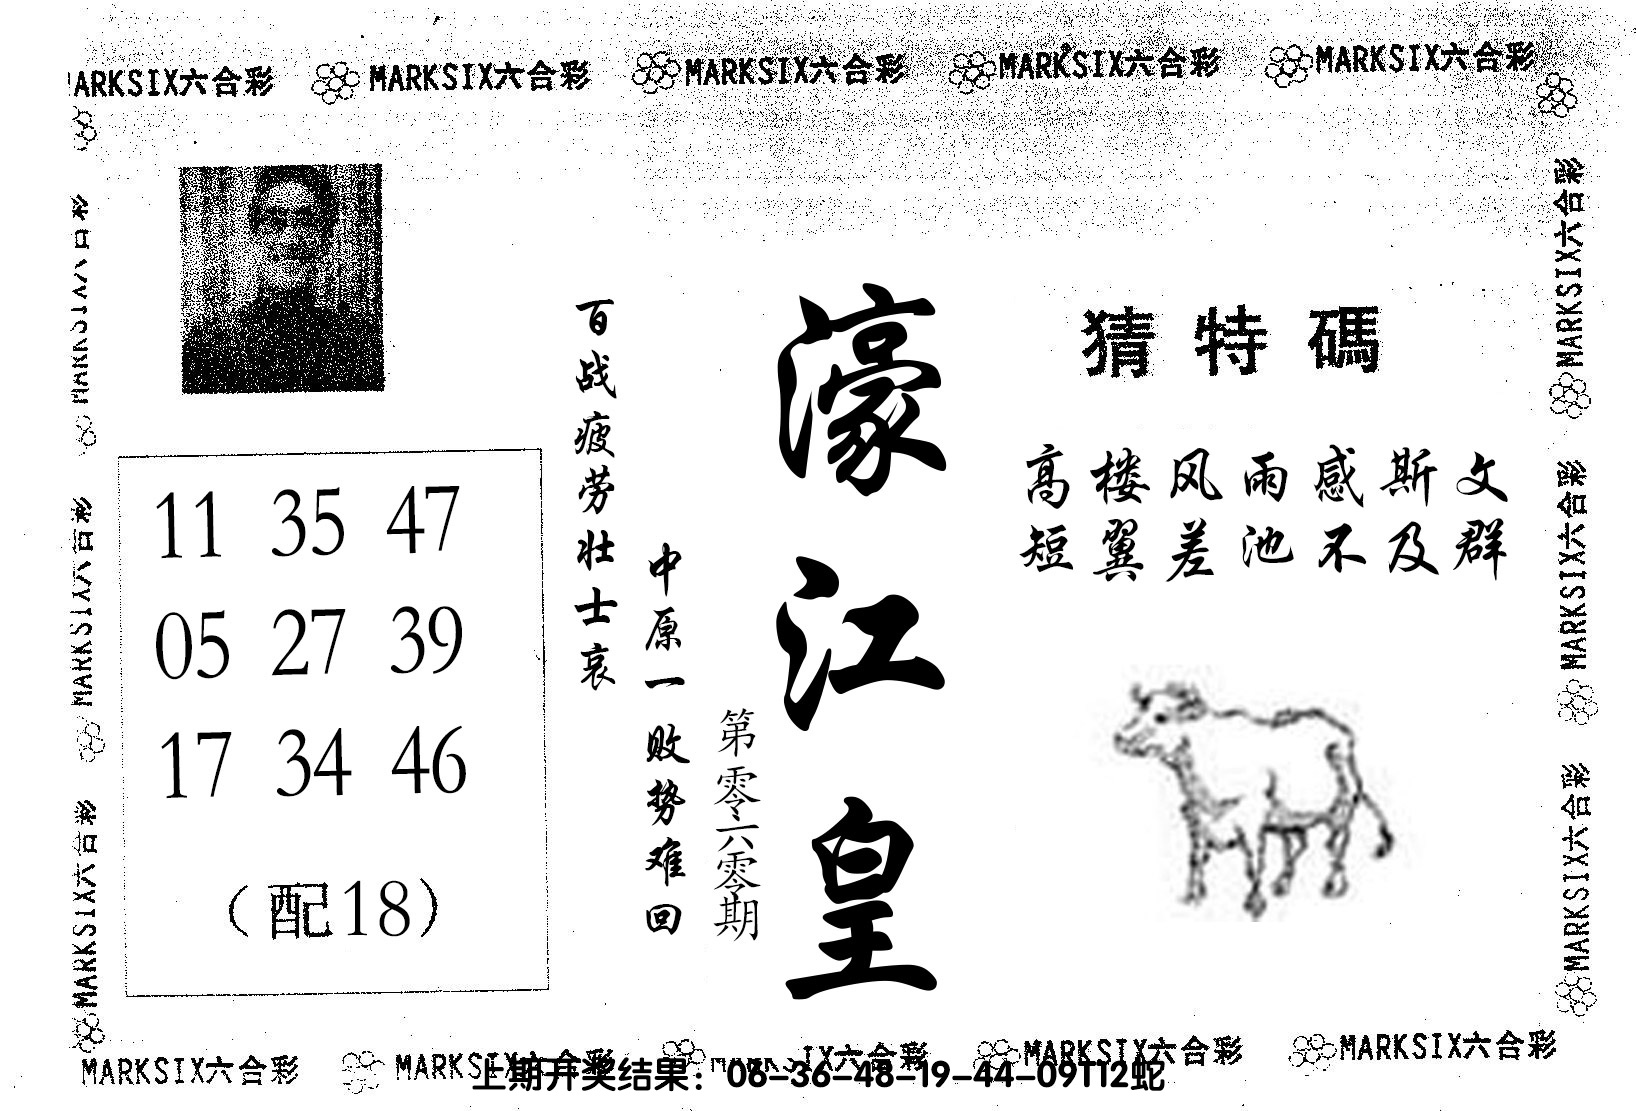 MARKSIX六合彩 MARKSIX六合彩 MARKSIX六合彩 MARKSIX六合彩 MARKSIX六合彩
猜特碼
高楼风雨感斯文
短翼差池不及群
濠江皇
第零六零期
百战疲劳壮士哀
中原一败势难回
11 35 47
05 27 39
17 34 46
（配18）
MARKSIX六合彩
MARKSIX六合彩
MARKSIX六合彩
MARKSIX六合彩
MARKSIX六合彩
MARKSIX六合彩
MARKSIX六合彩 MARKSIX六合彩 MARKSIX六合彩 MARKSIX六合彩
上期开奖结果：06-36-48-19-44-09T12蛇